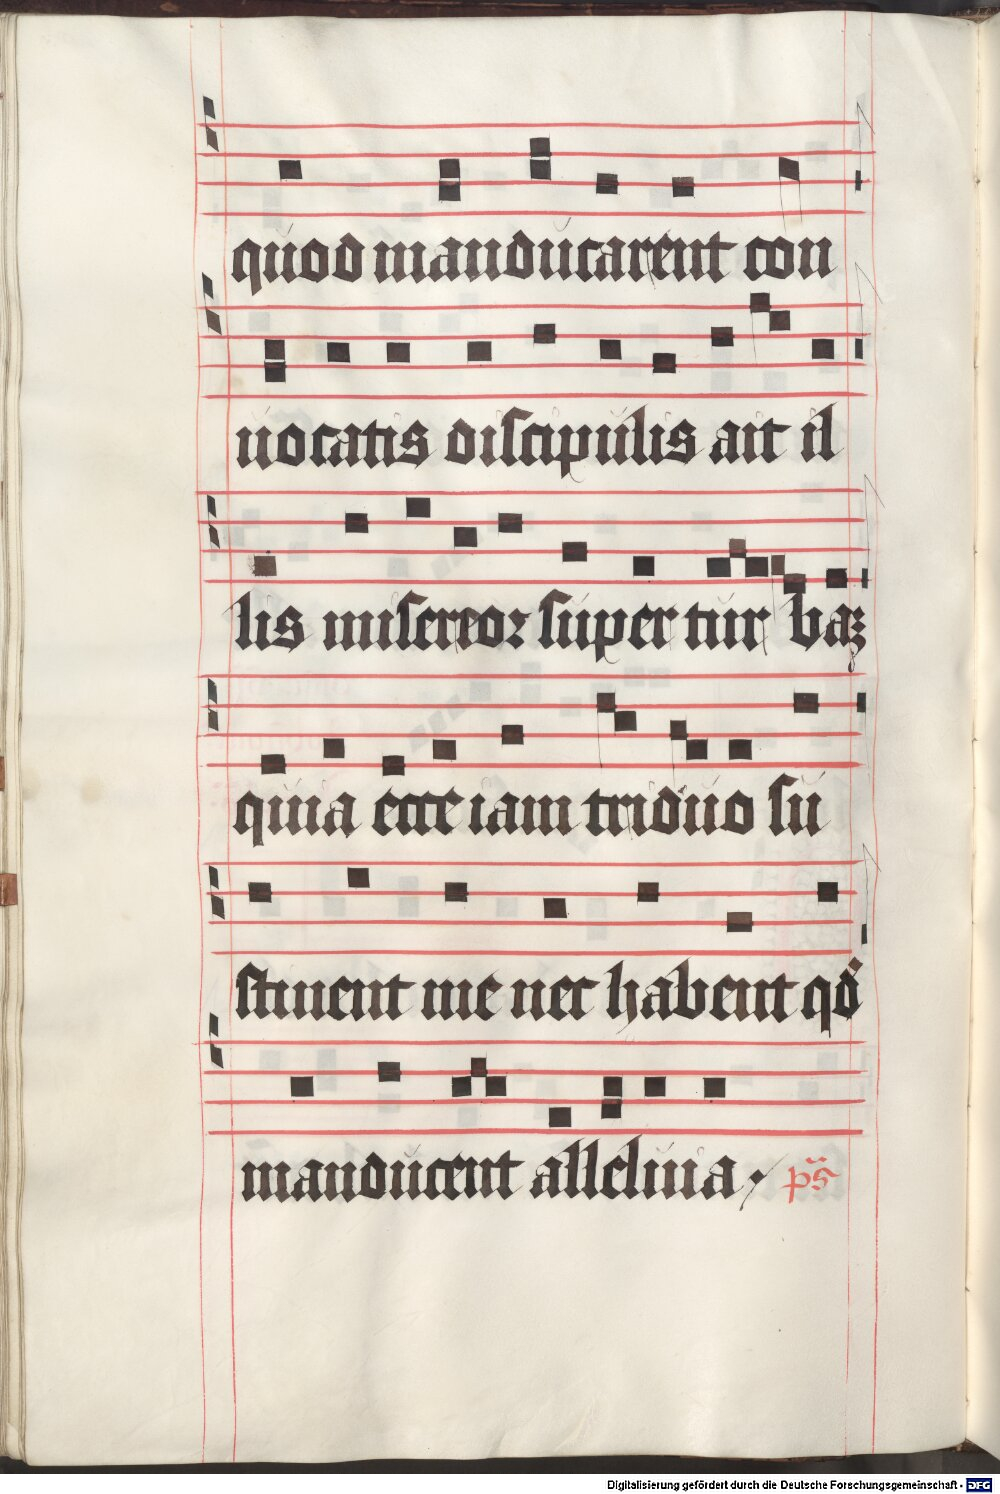 quod manducarent con
uocatis discipulis ait il
lis misereor super tur baꝫ
quia ecce iam triduo su
stinent me nec habent qd̄
manducent alleluia. p̄s
Digitalisierung gefördert durch die Deutsche Forschungsgemeinschaft - DFG